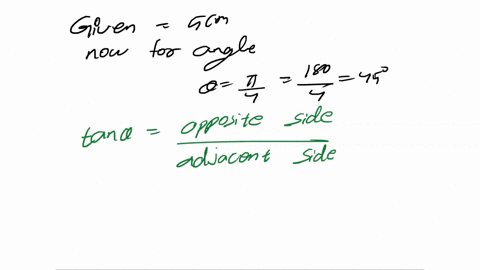 Given = 5cm
now for angle
θ = π/4 = 180/4 = 45°
tanθ = opposite side / adjacent side